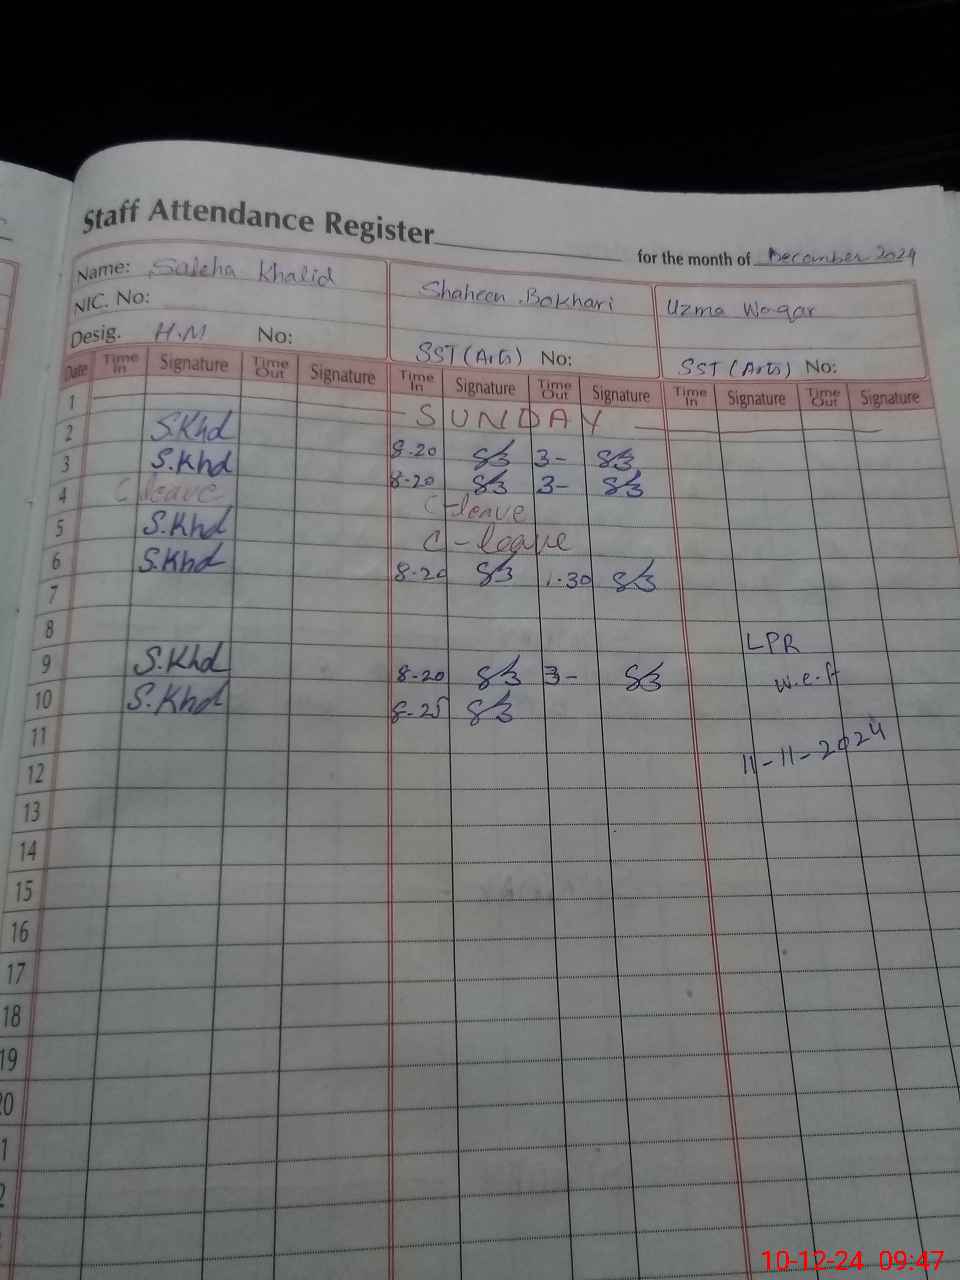 Staff Attendance Register
for the month of December 2024
Name: Saleha Khalid Shaheen Bokhari Uzma Waqar
NIC. No:
Desig. H.M No: SST (Arts) No: SST (Arts) No:
Date Time In Signature Time Out Signature Time In Signature Time Out Signature Time In Signature Time Out Signature
1 - SUNDAY -
2 S.Khd 8-20 3-
3 S.Khd 8-20 3-
4 C leave C-leave
5 S.Khd C-leave
6 S.Khd 8-20 1-30
7
8 LPR
9 S.Khd 8-20 3- w.e.f
10 S.Khd 8-25
11 11-11-2024
12
13
14
15
16
17
18
19
20
1
2
10-12-24 09:47